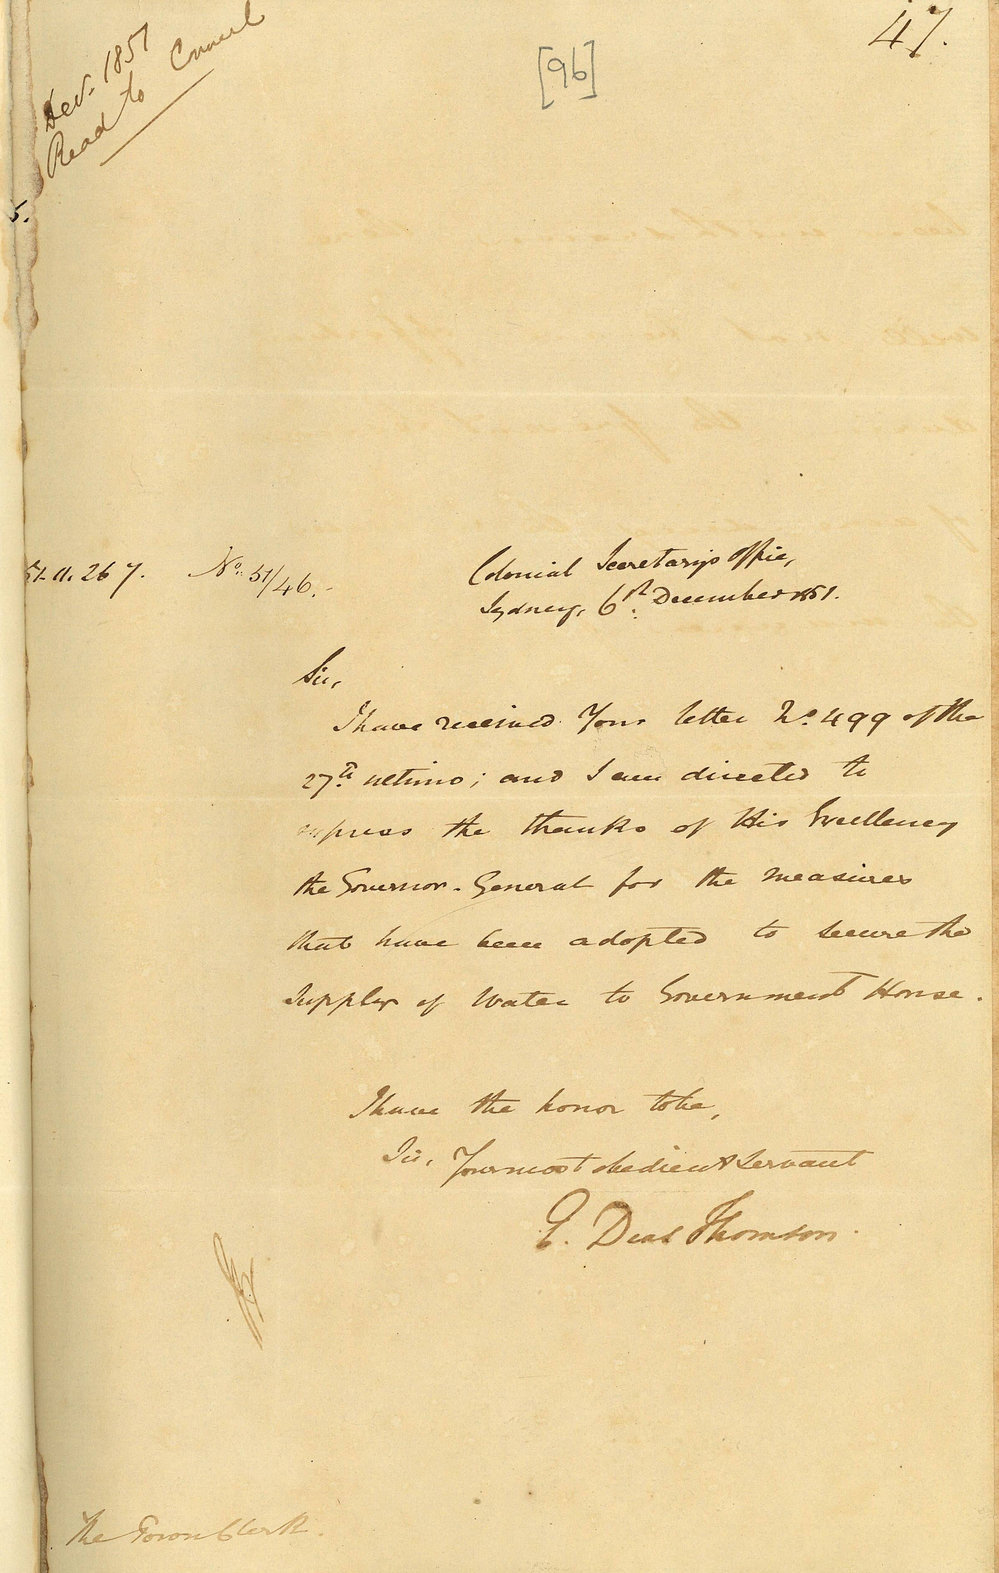 47.
[96]
Dec. 1851
Read to Council
5.
51.11.267. No. 51/46.
Colonial Secretary's Office,
Sydney, 6th December 1851.
Sir,
I have received Your letter No. 499 of the
27th ultimo; and I am directed to
express the thanks of His Excellency
the Governor-General for the measures
that have been adopted to secure the
Supply of Water to Government House.
I have the honor to be,
Sir, Your most obedient Servant
E. Deas Thomson.
The Town Clerk.